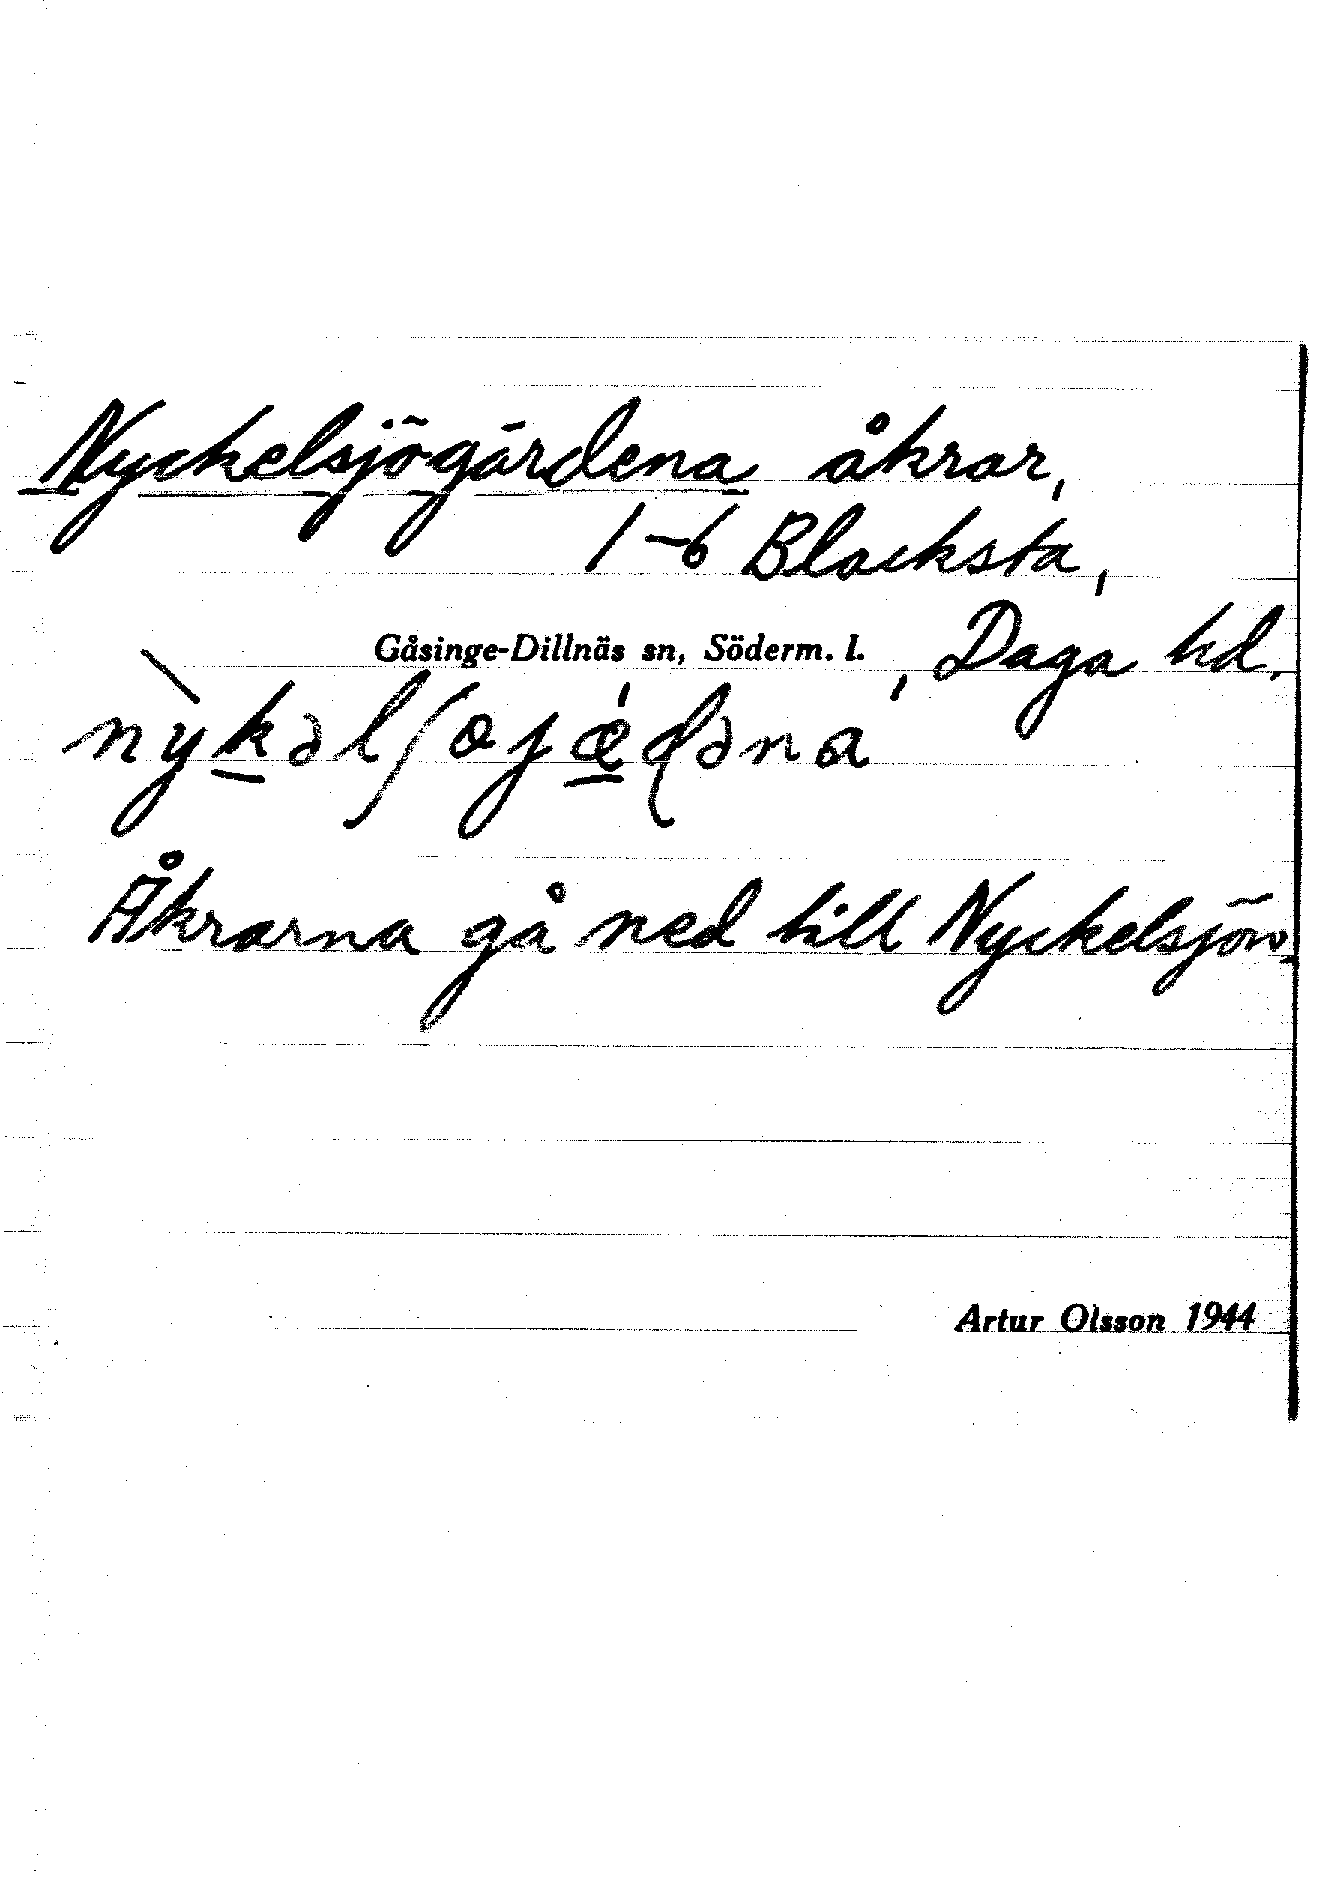 Nyckelsjögärdena åkrar,
1-6 Blacksta,
Gåsinge-Dillnäs sn, Söderm. l., Daga hd.
Åkrarna gå ned till Nyckelsjön.
Artur Olsson 1944